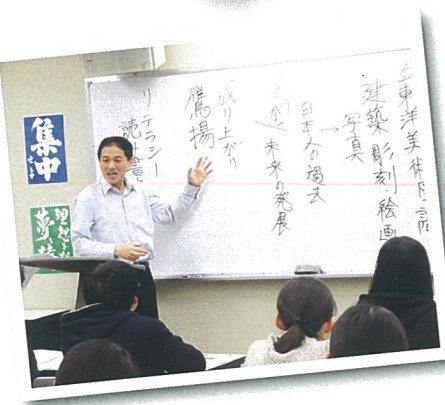 東洋美術
建築 彫刻 絵画
写真
日本人の過去
未来の発展
成り上がり
鷹揚
リテラシー
読
集中
理想
夢